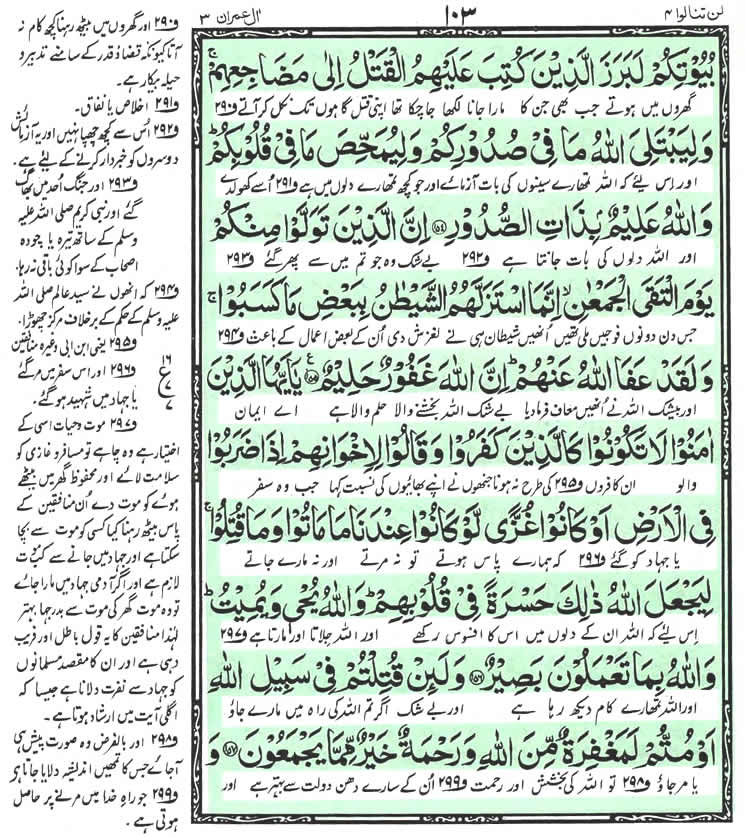 لن تنالوا ۴
۱۰۳
اٰل عمران ۳
بُیُوۡتِکُمۡ لَبَرَزَ الَّذِیۡنَ کُتِبَ عَلَیۡہِمُ الۡقَتۡلُ اِلٰی مَضَاجِعِہِمۡ ۚ
گھروں میں ہوتے جب بھی جن کا مارا جانا لکھا جاچکا تھا اپنی قتل گاہوں تک نکل کر آتے ف۲۹۰
وَلِیَبۡتَلِیَ اللہُ مَا فِیۡ صُدُوۡرِکُمۡ وَلِیُمَحِّصَ مَا فِیۡ قُلُوۡبِکُمۡ ؕ
اور اس لیے کہ اللہ تمھارے سینوں کی بات آزمائے اور جو کچھ تمھارے دلوں میں ہے ف۲۹۱ اُسے کھول دے
وَاللہُ عَلِیۡمٌۢ بِذَاتِ الصُّدُوۡرِ ﴿۱۵۴﴾ اِنَّ الَّذِیۡنَ تَوَلَّوۡا مِنۡکُمۡ
اور اللہ دلوں کی بات جانتا ہے ف۲۹۲ بے شک وہ جو تم میں سے پھر گئے ف۲۹۳
یَوۡمَ الۡتَقَی الۡجَمۡعٰنِ ۙ اِنَّمَا اسۡتَزَلَّہُمُ الشَّیۡطٰنُ بِبَعۡضِ مَا کَسَبُوۡا ۚ
جس دن دونوں فوجیں ملی تھیں انھیں شیطان ہی نے لغزش دی اُن کے بعض اعمال کے باعث ف۲۹۴
وَلَقَدۡ عَفَا اللہُ عَنۡہُمۡ ؕ اِنَّ اللہَ غَفُوۡرٌ حَلِیۡمٌ ﴿۱۵۵﴾ یٰۤاَیُّہَا الَّذِیۡنَ
اور بیشک اللہ نے انھیں معاف فرمادیا بے شک اللہ بخشنے والا حلم والا ہے اے ایمان
اٰمَنُوۡا لَا تَکُوۡنُوۡا کَالَّذِیۡنَ کَفَرُوۡا وَقَالُوۡا لِاِخۡوَانِہِمۡ اِذَا ضَرَبُوۡا
والو ان کافروں ف۲۹۵ کی طرح نہ ہونا جنھوں نے اپنے بھائیوں کی نسبت کہا جب وہ سفر
فِی الۡاَرۡضِ اَوۡ کَانُوۡا غُزًّی لَّوۡ کَانُوۡا عِنۡدَنَا مَا مَاتُوۡا وَمَا قُتِلُوۡا ۚ
یا جہاد کو گئے ف۲۹۶ کہ ہمارے پاس ہوتے تو نہ مرتے اور نہ مارے جاتے
لِیَجۡعَلَ اللہُ ذٰلِکَ حَسۡرَۃً فِیۡ قُلُوۡبِہِمۡ ؕ وَاللہُ یُحۡیٖ وَیُمِیۡتُ ؕ
اس لیے کہ اللہ ان کے دلوں میں اس کا افسوس رکھے اور اللہ جِلاتا اور مارتا ہے ف۲۹۷
وَاللہُ بِمَا تَعۡمَلُوۡنَ بَصِیۡرٌ ﴿۱۵۶﴾ وَلَئِنۡ قُتِلۡتُمۡ فِیۡ سَبِیۡلِ اللہِ
اور اللہ تمھارے کام دیکھ رہا ہے اور بے شک اگر تم اللہ کی راہ میں مارے جاؤ
اَوۡ مُتُّمۡ لَمَغۡفِرَۃٌ مِّنَ اللہِ وَرَحۡمَۃٌ خَیۡرٌ مِّمَّا یَجۡمَعُوۡنَ ﴿۱۵۷﴾ وَ
یا مرجاؤ ف۲۹۸ تو اللہ کی بخشش اور رحمت ف۲۹۹ اُن کے سارے دھن دولت سے بہتر ہے اور
ف۲۹۰ اور گھروں میں بیٹھ رہنا کچھ کام نہ
آتا کیونکہ قضا و قدر کے سامنے تدبیر و
حیلہ بیکار ہے۔
ف۲۹۱ اخلاص یا نفاق۔
ف۲۹۲ اُس سے کچھ چھپا نہیں اور یہ آزمائش
دوسروں کو خبردار کرنے کے لیے ہے۔
ف۲۹۳ اور جنگ اُحد میں بھاگ
گئے اور نبی کریم صلی اللہ علیہ
وسلم کے ساتھ تیرہ یا چودہ
اصحاب کے سوا کوئی باقی نہ رہا۔
ف۲۹۴ کہ انھوں نے سید عالم صلی اللہ
علیہ وسلم کے حکم کے برخلاف مرکز چھوڑا۔
ف۲۹۵ یعنی ابن ابی وغیرہ منافقین
ف۲۹۶ اور اس سفر میں مرگئے
یا جہاد میں شہید ہوگئے۔
ف۲۹۷ موت و حیات اسی کے
اختیار ہے وہ چاہے تو مسافر و غازی کو
سلامت لائے اور محفوظ گھر میں بیٹھے
ہوئے کو موت دے اُن منافقین کے
پاس بیٹھ رہنا کیا کسی کو موت سے بچا
سکتا ہے اور جہاد میں جانے سے کب موت
لازم ہے اور اگر آدمی جہاد میں مارا جائے
تو وہ موت گھر کی موت سے بدرجہا بہتر
لہٰذا منافقین کا یہ قول باطل اور فریب
دہی ہے اور ان کا مقصد مسلمانوں
کو جہاد سے نفرت دلانا ہے جیسا کہ
اگلی آیت میں ارشاد ہوتا ہے۔
ف۲۹۸ اور بالفرض وہ صورت پیش ہی
آجائے جس کا تمھیں اندیشہ دلایا جاتا ہے
ف۲۹۹ جو راہ خدا میں مرنے پر حاصل
ہوتی ہے۔
۱۶
ع
۷
۷